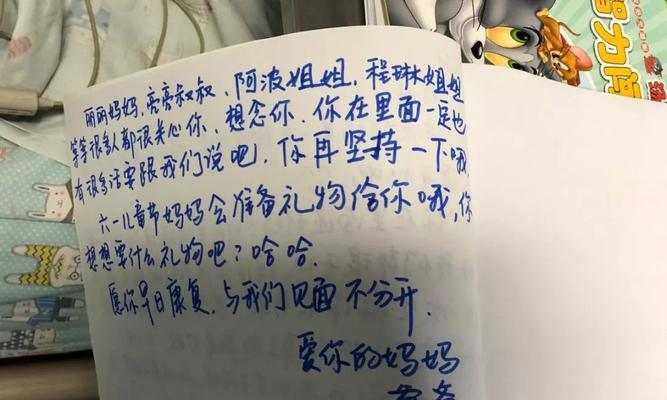 丽丽妈妈、亮亮叔叔、阿波姐姐、程琳姐姐
等等很多人都很关心你、想念你。你在里面一定也
有很多话要跟我们说吧，你再坚持一下哦，
六一儿童节妈妈会准备礼物给你哦，你
想想要什么礼物吧？哈哈.
愿你早日康复，与我们见面不分开.
爱你的妈妈
智力